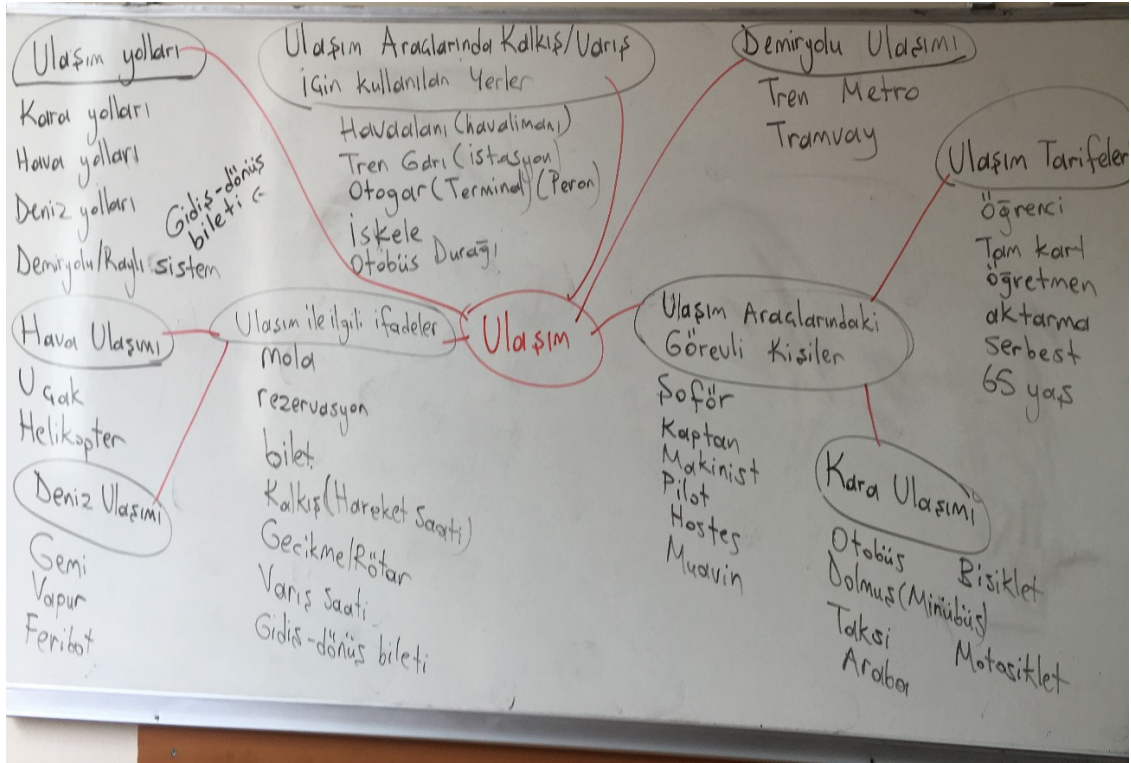 Ulaşım yolları
Kara yolları
Hava yolları
Deniz yolları
Demiryolu/Raylı sistem
Gidiş-dönüş
bileti
Ulaşım Araçlarında Kalkış/Varış
için kullanılan Yerler
Havaalanı (havalimanı)
Tren Garı (istasyon)
Otogar (Terminal) (Peron)
İskele
Otobüs Durağı
Demiryolu Ulaşımı
Tren Metro
Tramvay
Ulaşım Tarifeler
öğrenci
Tam kart
öğretmen
aktarma
serbest
65 yaş
Hava Ulaşımı
Uçak
Helikopter
Deniz Ulaşımı
Gemi
Vapur
Feribot
Ulaşım ile ilgili ifadeler
mola
rezervasyon
bilet
Kalkış (Hareket Saati)
Gecikme/Rötar
Varış Saati
Gidiş-dönüş bileti
Ulaşım
Ulaşım Araçlarındaki
Görevli Kişiler
Şoför
Kaptan
Makinist
Pilot
Hostes
Muavin
Kara Ulaşımı
Otobüs Bisiklet
Dolmuş (Minübüs)
Taksi Motosiklet
Araba